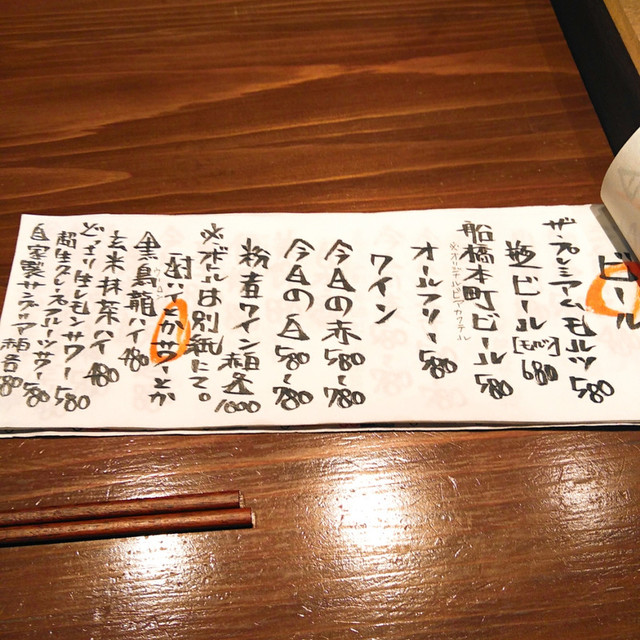 ビール
ザ・プレミアムモルツ 580
瓶ビール [モルツ] 680
船橋本町ビール 580
※オリジナルビアカクテル
オールフリー 580
ワイン
今日の赤 580~780
今日の白 580~780
粉者ワイン 赤 白 1000
※ボトルは別紙にて。
酎ハイとかサワーとか
黒烏龍ハイ 480
ウーロン
玄米抹茶ハイ 480
どっさり生レモンサワー 580
超生グレープフルーツサワー 580
自家製サングリア 赤 白 580